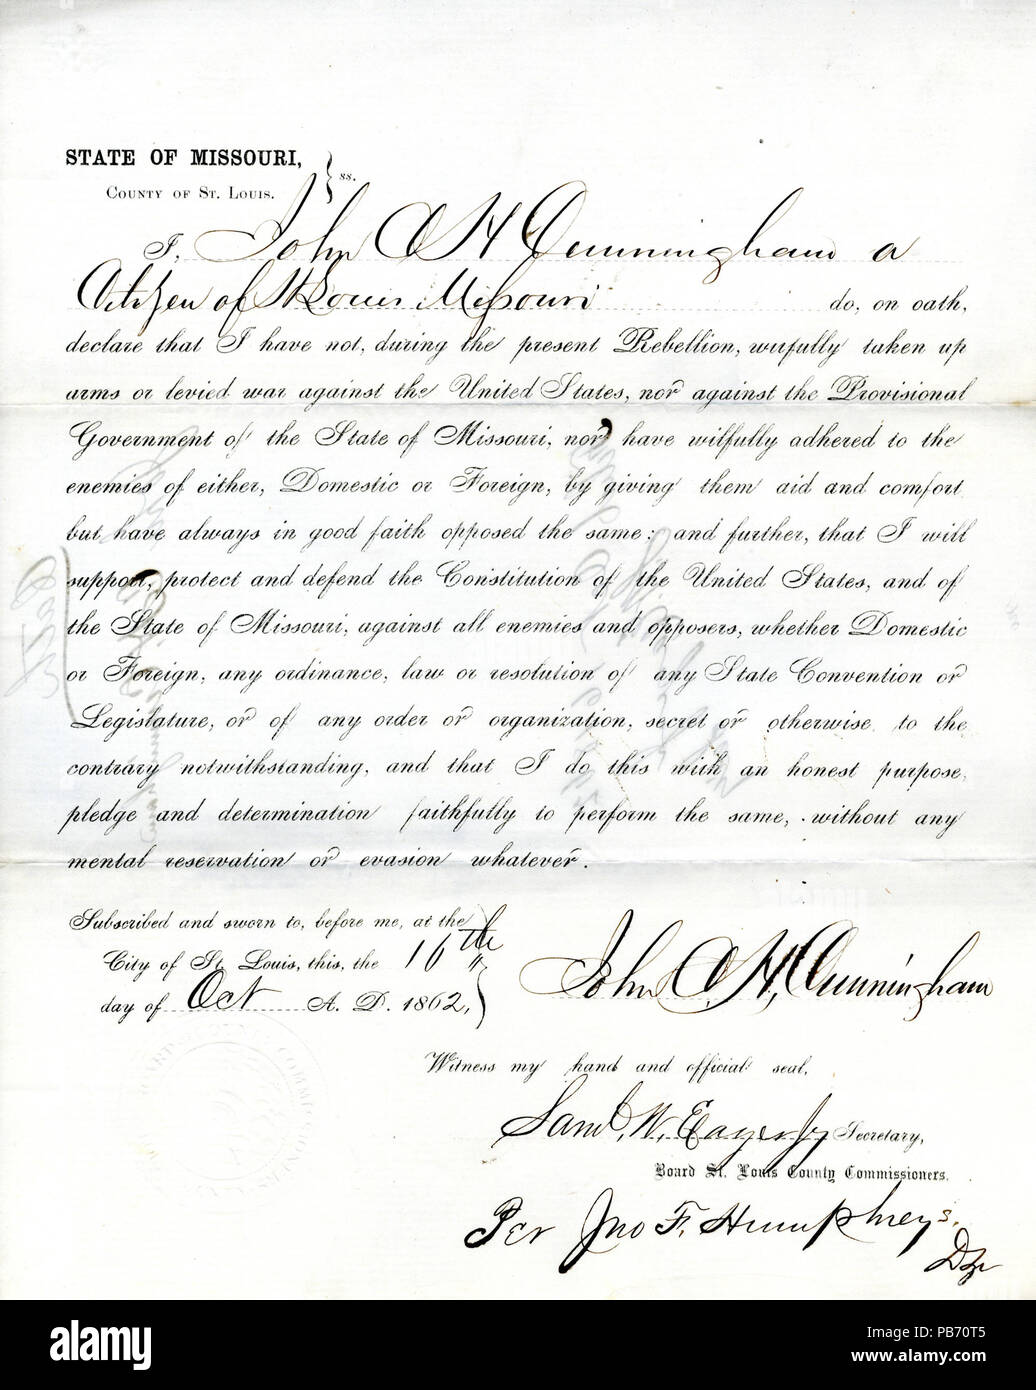 STATE OF MISSOURI,
COUNTY OF ST. LOUIS. } ss.
I, John C H Cunningham a
Citizen of St Louis Missouri do, on oath,
declare that I have not, during the present Rebellion, wilfully taken up
arms or levied war against the United States, nor against the Provisional
Government of the State of Missouri, nor have wilfully adhered to the
enemies of either, Domestic or Foreign, by giving them aid and comfort
but have always in good faith opposed the same: and further, that I will
support, protect and defend the Constitution of the United States, and of
the State of Missouri, against all enemies and opposers, whether Domestic
or Foreign, any ordinance, law or resolution of any State Convention or
Legislature, or of any order or organization, secret or otherwise to the
contrary notwithstanding, and that I do this with an honest purpose,
pledge and determination faithfully to perform the same, without any
mental reservation or evasion whatever.
Subscribed and sworn to, before me, at the
City of St Louis, this, the 16th
day of Oct A. D. 1862,
John C. H. Cunningham
Witness my hand and official seal,
Saml. W. Eager Jr Secretary,
Board St. Louis County Commissioners.
Per Jno F. Humphreys.
alamy
Image ID: PB70T5
www.alamy.com